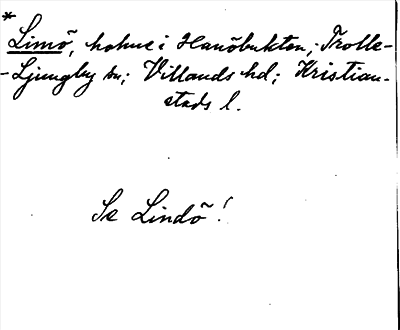 *
Limö, holme i Hanöbukten; Trolle-
-Ljungby sn; Villands hd; Kristian-
stads l.
Se Lindö!